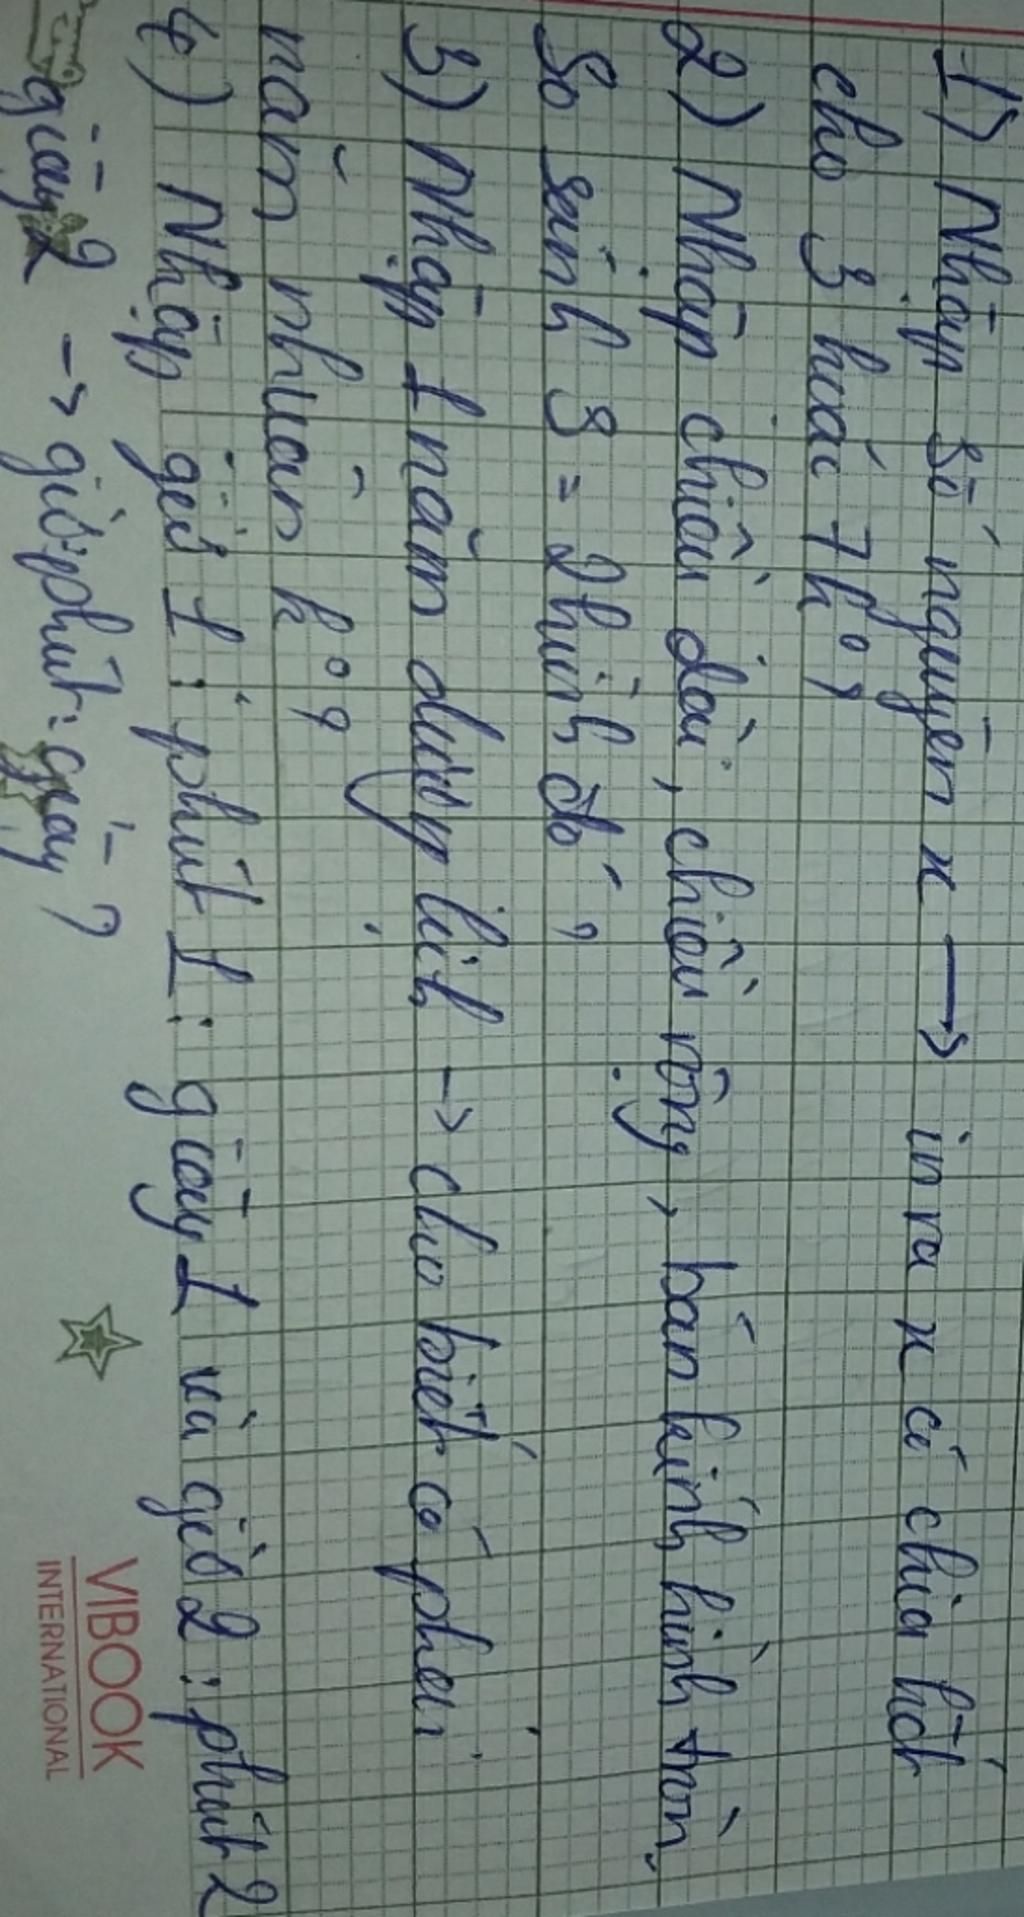 1) Nhập số nguyên x → in ra x có chia hết
cho 3 hoặc 7 k⁰?
2) Nhập chiều dài, chiều rộng, bán kính hình tròn.
So sánh S = 2 hình đó?
3) Nhập 1 năm dương lịch → cho biết có phải
năm nhuận k⁰?
4) Nhập giờ 1 : phút 1 : giây 1 và giờ 2 : phút 2
giây 2 → giờ:phút:giây?
VIBOOK
INTERNATIONAL